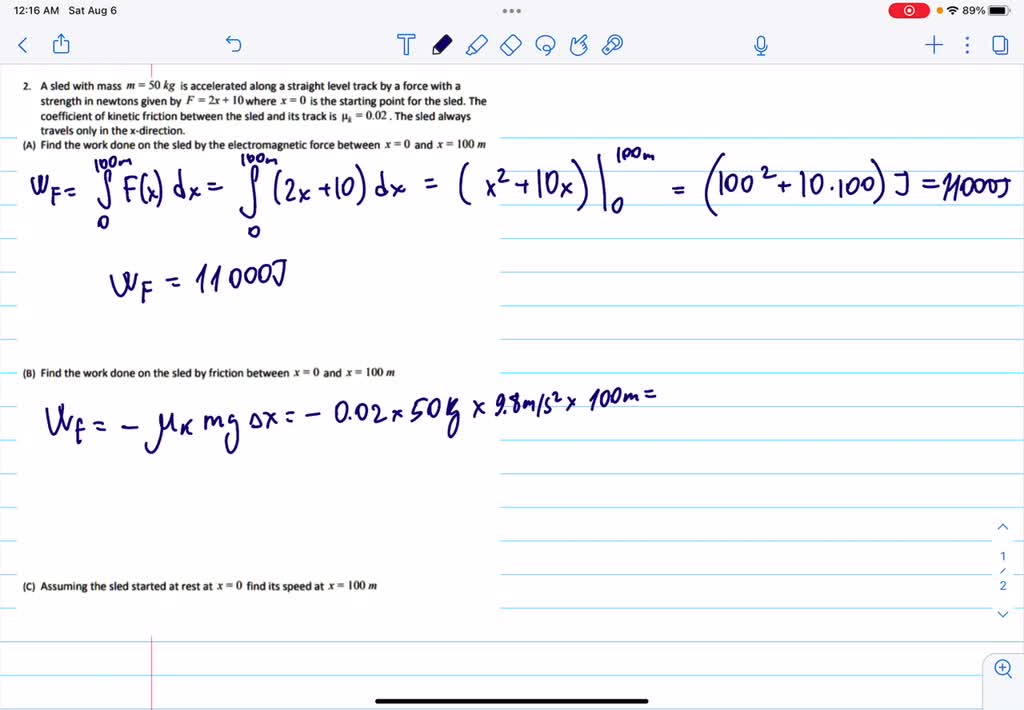 12:16 AM Sat Aug 6
89%
T
2. A sled with mass m = 50 kg is accelerated along a straight level track by a force with a
strength in newtons given by F = 2x + 10 where x = 0 is the starting point for the sled. The
coefficient of kinetic friction between the sled and its track is μₖ = 0.02. The sled always
travels only in the x-direction.
(A) Find the work done on the sled by the electromagnetic force between x = 0 and x = 100 m
W_F = ∫₀^100m F(x) dx = ∫₀^100m (2x + 10) dx = (x² + 10x)|₀^100m = (100² + 10·100) J = 11000J
W_F = 11000J
(B) Find the work done on the sled by friction between x = 0 and x = 100 m
W_f = - μ_K mg Δx = - 0.02 × 50 kg × 9.8 m/s² × 100m =
(C) Assuming the sled started at rest at x = 0 find its speed at x = 100 m
1
/
2